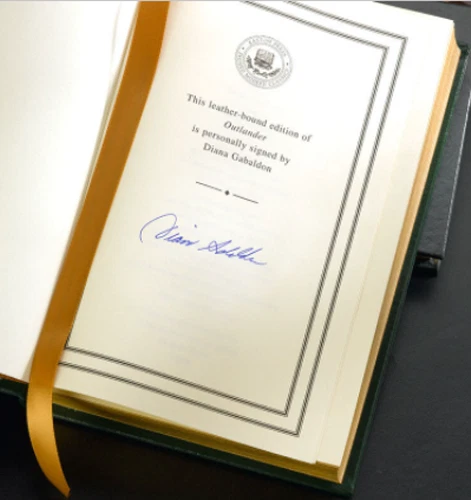 This leather-bound edition of
Outlander
is personally signed by
Diana Gabaldon